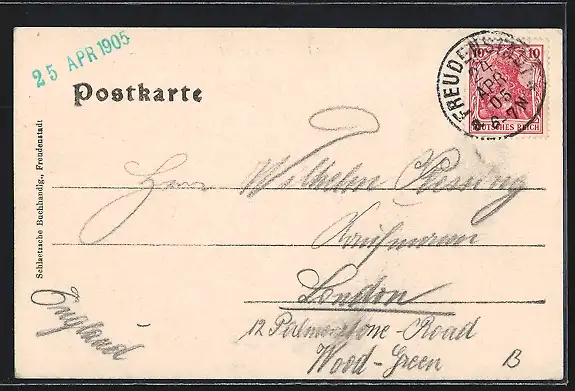 25 APR 1905
Postkarte
10 10
FREUDENSTADT
24 APR 05
6-7N
DEUTSCHES REICH
Schlaetzsche Buchhandlg., Freudenstadt
Herrn Wilhelm
Kaufmann
London
12 Palmerstone-Road
Wood-Green
England
B